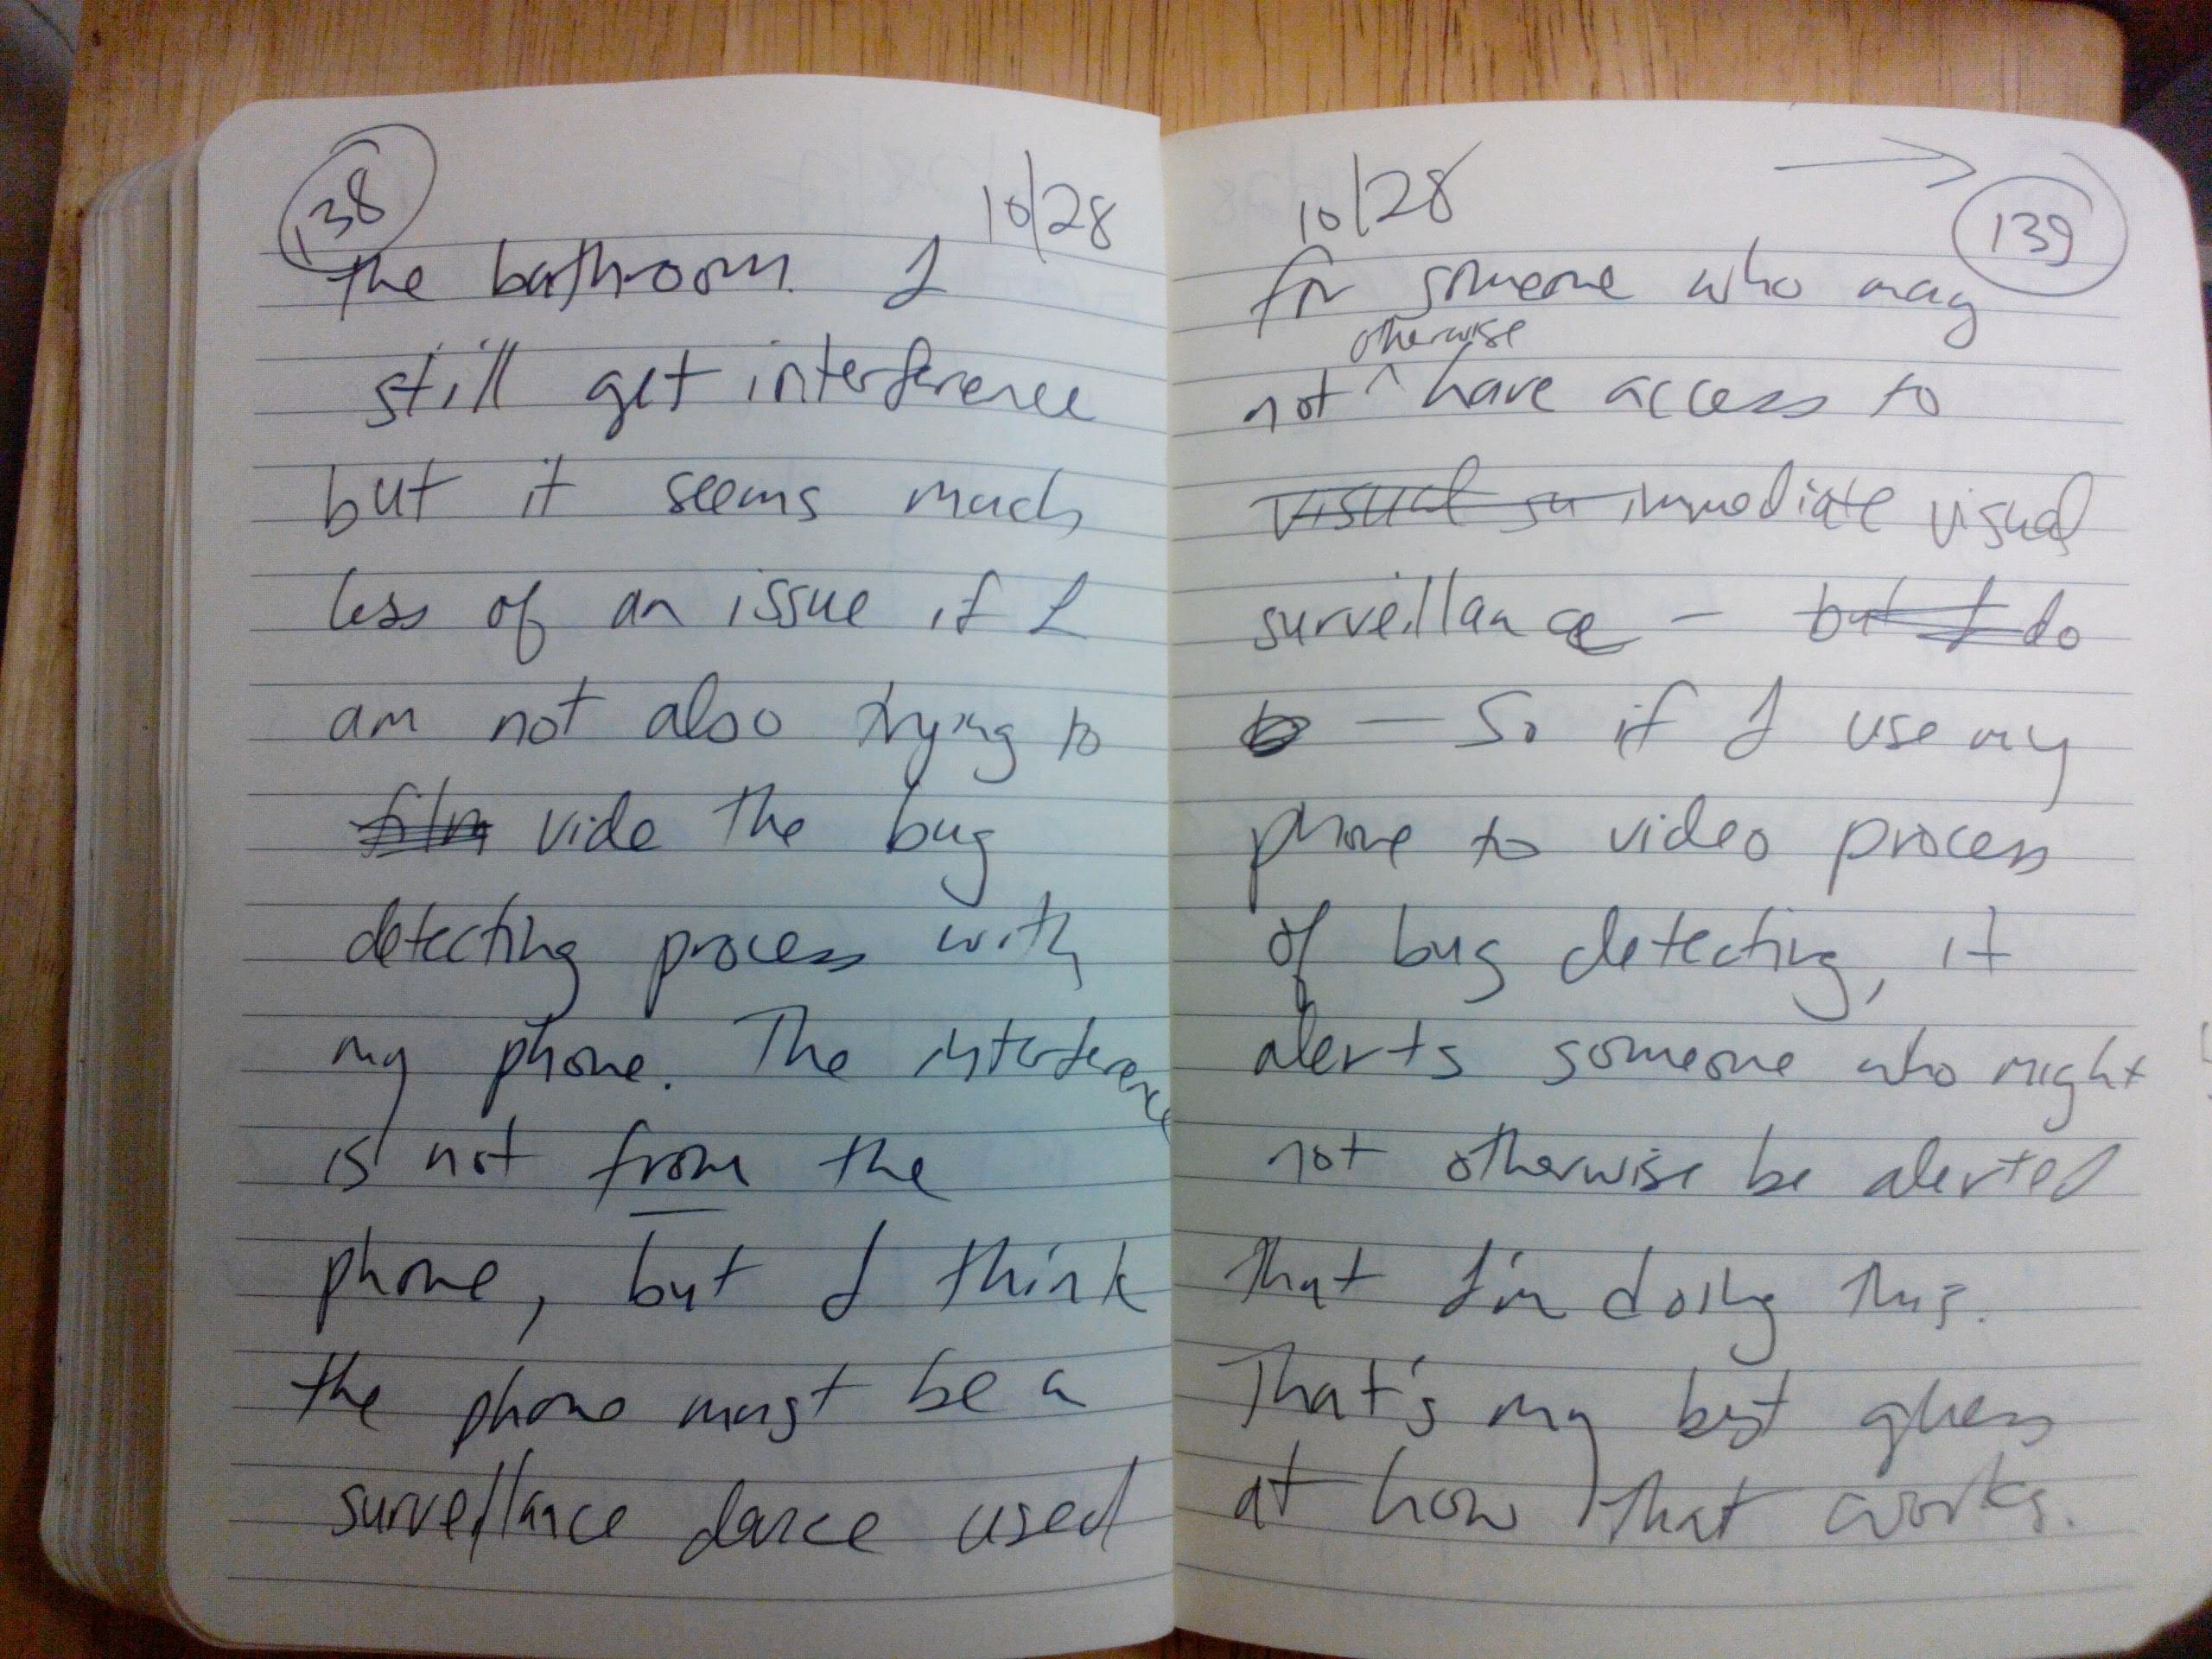 138 10/28
the bathroom. I
still get interference
but it seems much
less of an issue if I
am not also trying to
film vide the bug
detecting process with
my phone. The interference
is not from the
phone, but I think
the phone must be a
surveillance davice used
10/28 → 139
for someone who may
otherwise
not ^ have access to
visual su immediate visual
surveillance — but I do
— So if I use my
phone to video process
of bug detecting, it
alerts someone who might
not otherwise be alerted
that I'm doing this.
That's my best guess
at how that works.